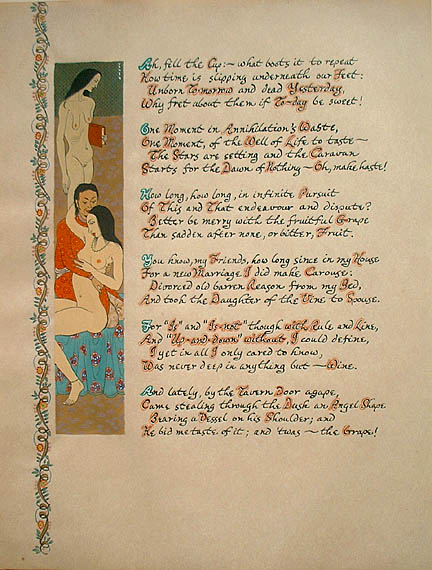 Ah, fill the Cup:— what boots it to repeat
How time is slipping underneath our Feet:
Unborn To-morrow and dead Yesterday,
Why fret about them if To-day be sweet!
One Moment in Annihilation's Waste,
One Moment, of the Well of Life to taste—
The Stars are setting and the Caravan
Starts for the Dawn of Nothing—Oh, make haste!
How long, how long, in infinite Pursuit
Of This and That endeavour and dispute?
Better be merry with the fruitful Grape
Than sadden after none, or bitter, Fruit.
You know, my Friends, how long since in my House
For a new Marriage I did make Carouse:
Divorced old barren Reason from my Bed,
And took the Daughter of the Vine to Spouse.
For "Is" and "Is-not" though with Rule and Line,
And "Up-and-down" without, I could define,
I yet in all I only cared to know,
Was never deep in anything but—Wine.
And lately, by the Tavern Door agape,
Came stealing through the Dusk an Angel Shape
Bearing a Vessel on his Shoulder; and
He bid me taste of it; and 'twas—the Grape!